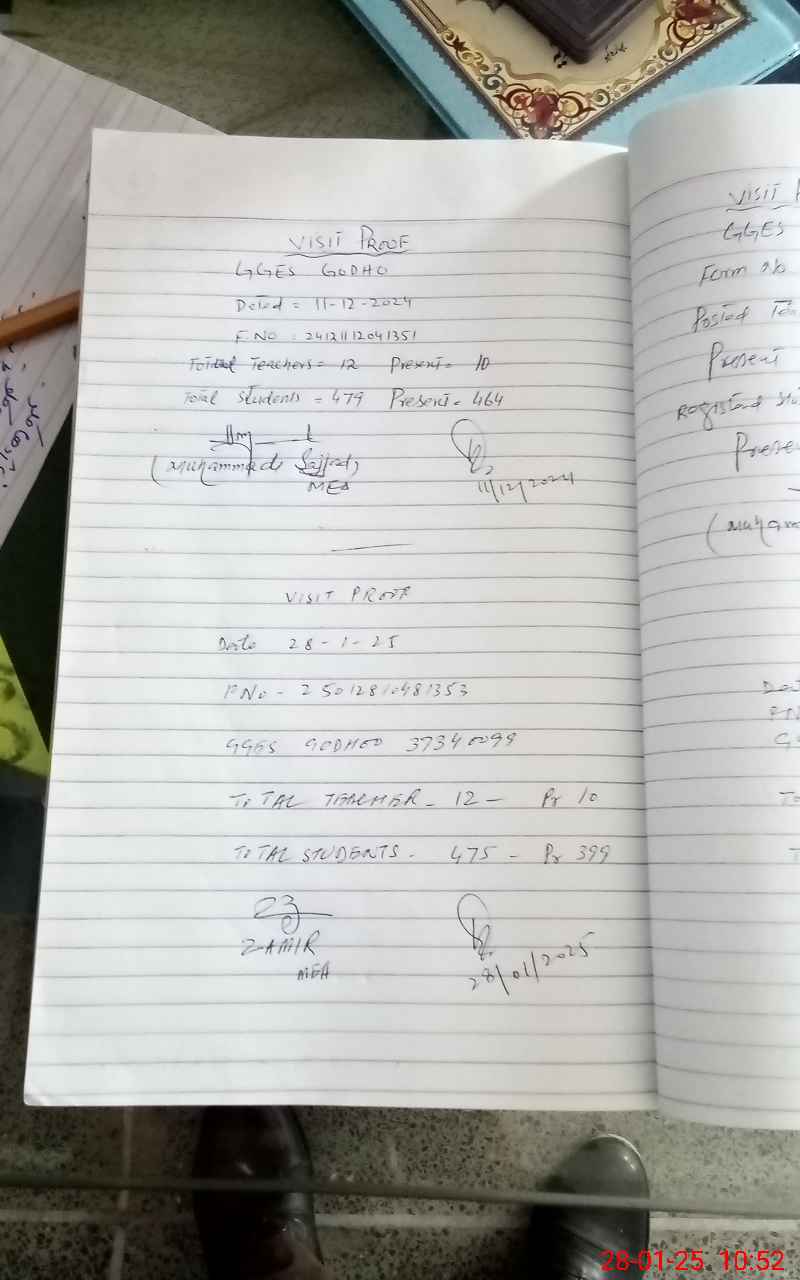 VISIT PROOF
GGES GODHO
Dated = 11-12-2024
F.NO : 24121112041351
Total Teachers = 12 Present = 10
Total Students = 479 Present = 464
(Muhammad Sajjad)
MEA
11/12/2024
VISIT PROOF
Date 28-1-25
FNo - 25012810481353
GGES GODHOO 37340099
TOTAL TEACHER - 12 - Pr 10
TOTAL STUDENTS - 475 - Pr 399
ZAMIR
MEA
28/01/2025
VISIT
GGES
Form No
Posted
Present
Registered
28-01-25 10:52